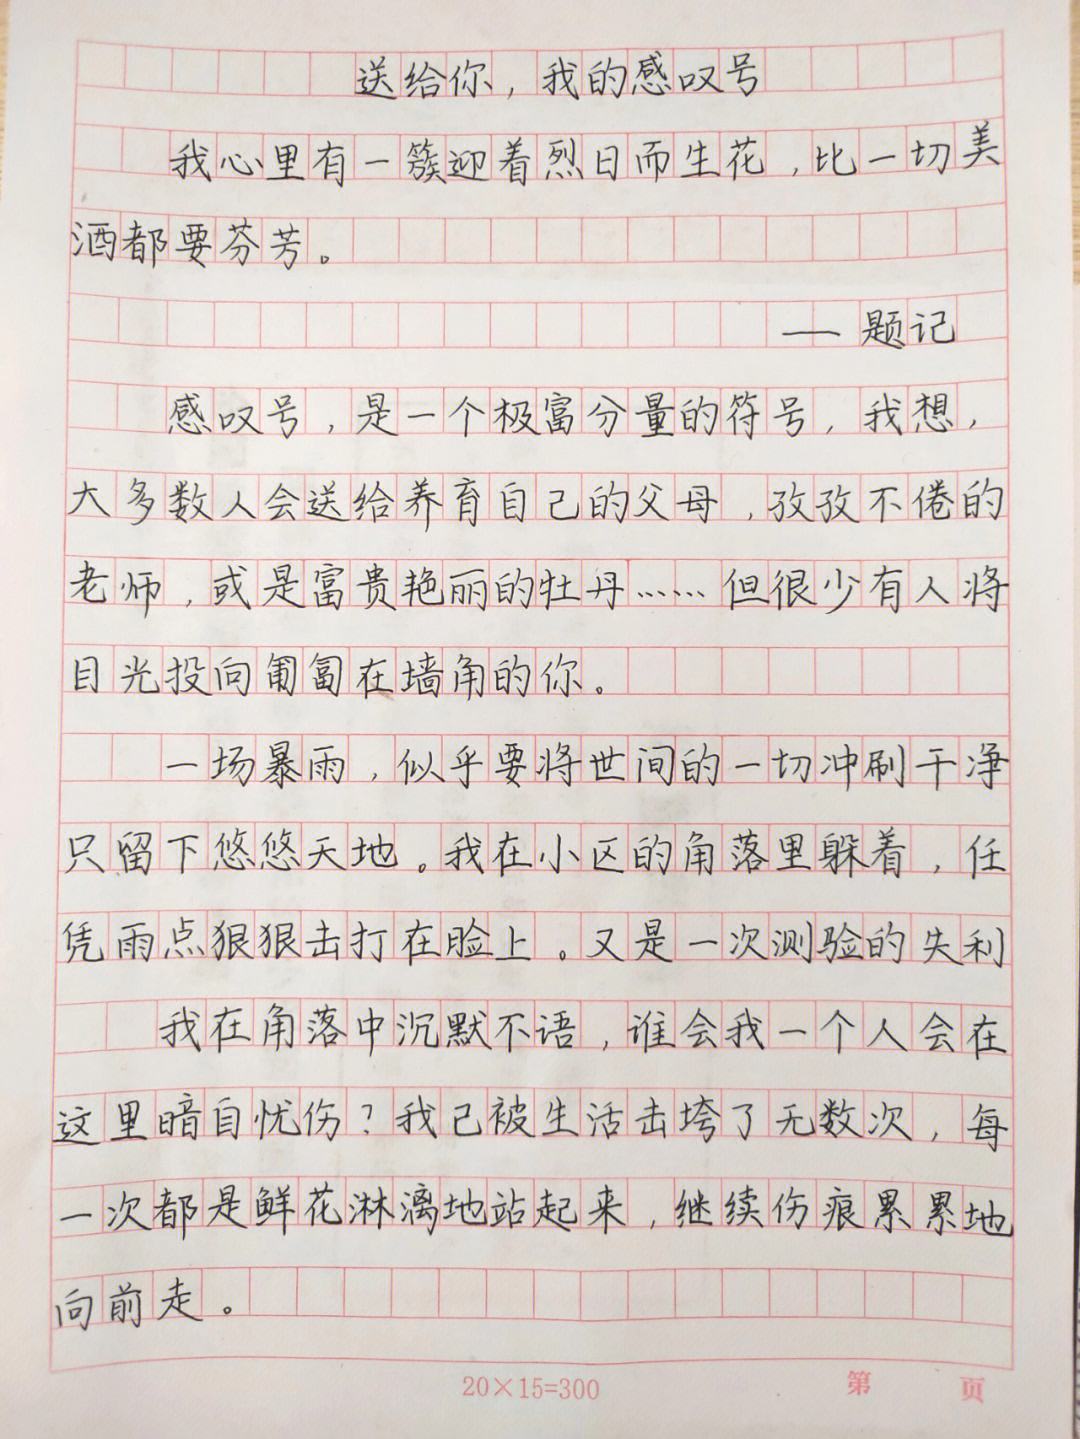 送给你，我的感叹号
我心里有一簇迎着烈日而生花，比一切美
酒都要芬芳。
——题记
感叹号，是一个极富分量的符号，我想，
大多数人会送给养育自己的父母，孜孜不倦的
老师，或是富贵艳丽的牡丹……但很少有人将
目光投向匍匐在墙角的你。
一场暴雨，似乎要将世间的一切冲刷干净
只留下悠悠天地。我在小区的角落里躲着，任
凭雨点狠狠击打在脸上。又是一次测验的失利
我在角落中沉默不语，谁会我一个人会在
这里暗自忧伤？我已被生活击垮了无数次，每
一次都是鲜花淋漓地站起来，继续伤痕累累地
向前走。
20×15=300
第 页